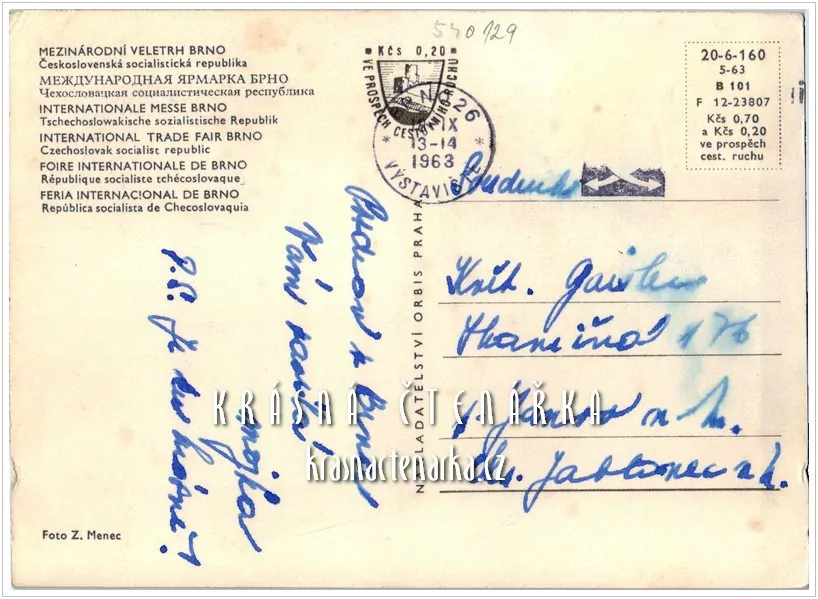 540129
MEZINÁRODNÍ VELETRH BRNO
Československá socialistická republika
МЕЖДУНАРОДНАЯ ЯРМАРКА БРНО
Чехословацкая социалистическая республика
INTERNATIONALE MESSE BRNO
Tschechoslowakische sozialistische Republik
INTERNATIONAL TRADE FAIR BRNO
Czechoslovak socialist republic
FOIRE INTERNATIONALE DE BRNO
République socialiste tchécoslovaque
FERIA INTERNACIONAL DE BRNO
República socialista de Checoslovaquia
Kčs 0,20
VE PROSPĚCH CESTOVNÍHO RUCHU
BRNO 26
IX
13-14
1963
VÝSTAVIŠTĚ
20-6-160
5-63
B 101
F 12-23807
Kčs 0,70
a Kčs 0,20
ve prospěch
cest. ruchu
Soudruh
Květ.
176
n
Jablonec n
NAKLADATELSTVÍ ORBIS PRAHA
Pozdrav z Brna
Vám
P.S. Je
KRÁSNÁ ČTENÁŘKA
krasnactenarka.cz
Foto Z. Menec